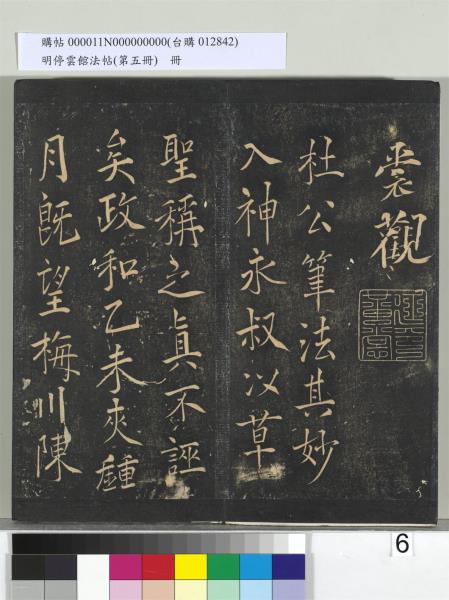 購帖 000011N000000000(台購 012842)
明停雲館法帖(第五冊) 冊
裳觀
杜公筆法其妙
入神永叔以草
聖稱之真不誣
矣政和乙未夾鍾
月既望梅川陳
6